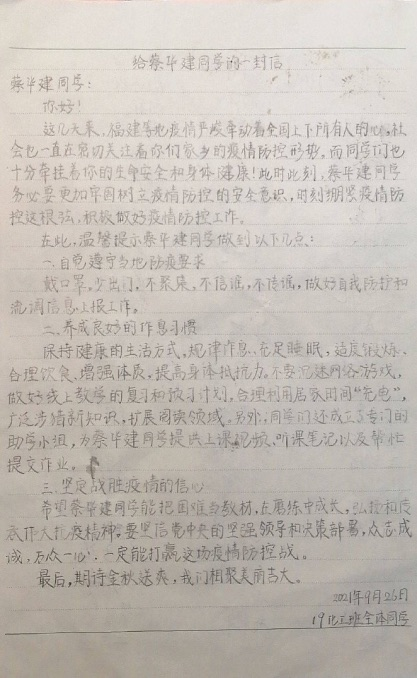 给蔡华建同学的一封信
蔡华建同学：
你好！
这几天来，福建等地疫情严峻牵动着全国上下所有人的心，社
会也一直在密切关注着你们家乡的疫情防控形势。而同学们也
十分牵挂着你的生命安全和身体健康！此时此刻，蔡华建同学
务必要更加牢固树立疫情防控的安全意识，时刻绷紧疫情防
控这根弦，积极做好疫情防控工作。
在此，温馨提示蔡华建同学做到以下几点：
一.自觉遵守当地防疫要求
戴口罩，少出门，不聚集，不信谣，不传谣，做好自我防护和
流调信息上报工作。
二.养成良好的作息习惯
保持健康的生活方式，规律作息、充足睡眠，适度锻炼、
合理饮食、增强体质，提高身体抵抗力。不要沉迷网络游戏，
做好线上教学的复习和预习计划。合理利用居家时间“充电”，
广泛步猎新知识，扩展阅读领域。另外，同学们还成立了专门的
助学小组，为蔡华建同学提供上课视频、听课笔记以及帮忙
提交作业。
三.坚定战胜疫情的信心
希望蔡华建同学能把困难当教材，在磨练中成长，弘扬和传
承伟大抗疫精神。要坚信党中央的坚强领导和决策部署，众志成
诚，万众一心，一定能打赢这场疫情防控战。
最后，期待金秋送爽，我们相聚美丽吉大。
2021年9月26日
19化工班全体同学